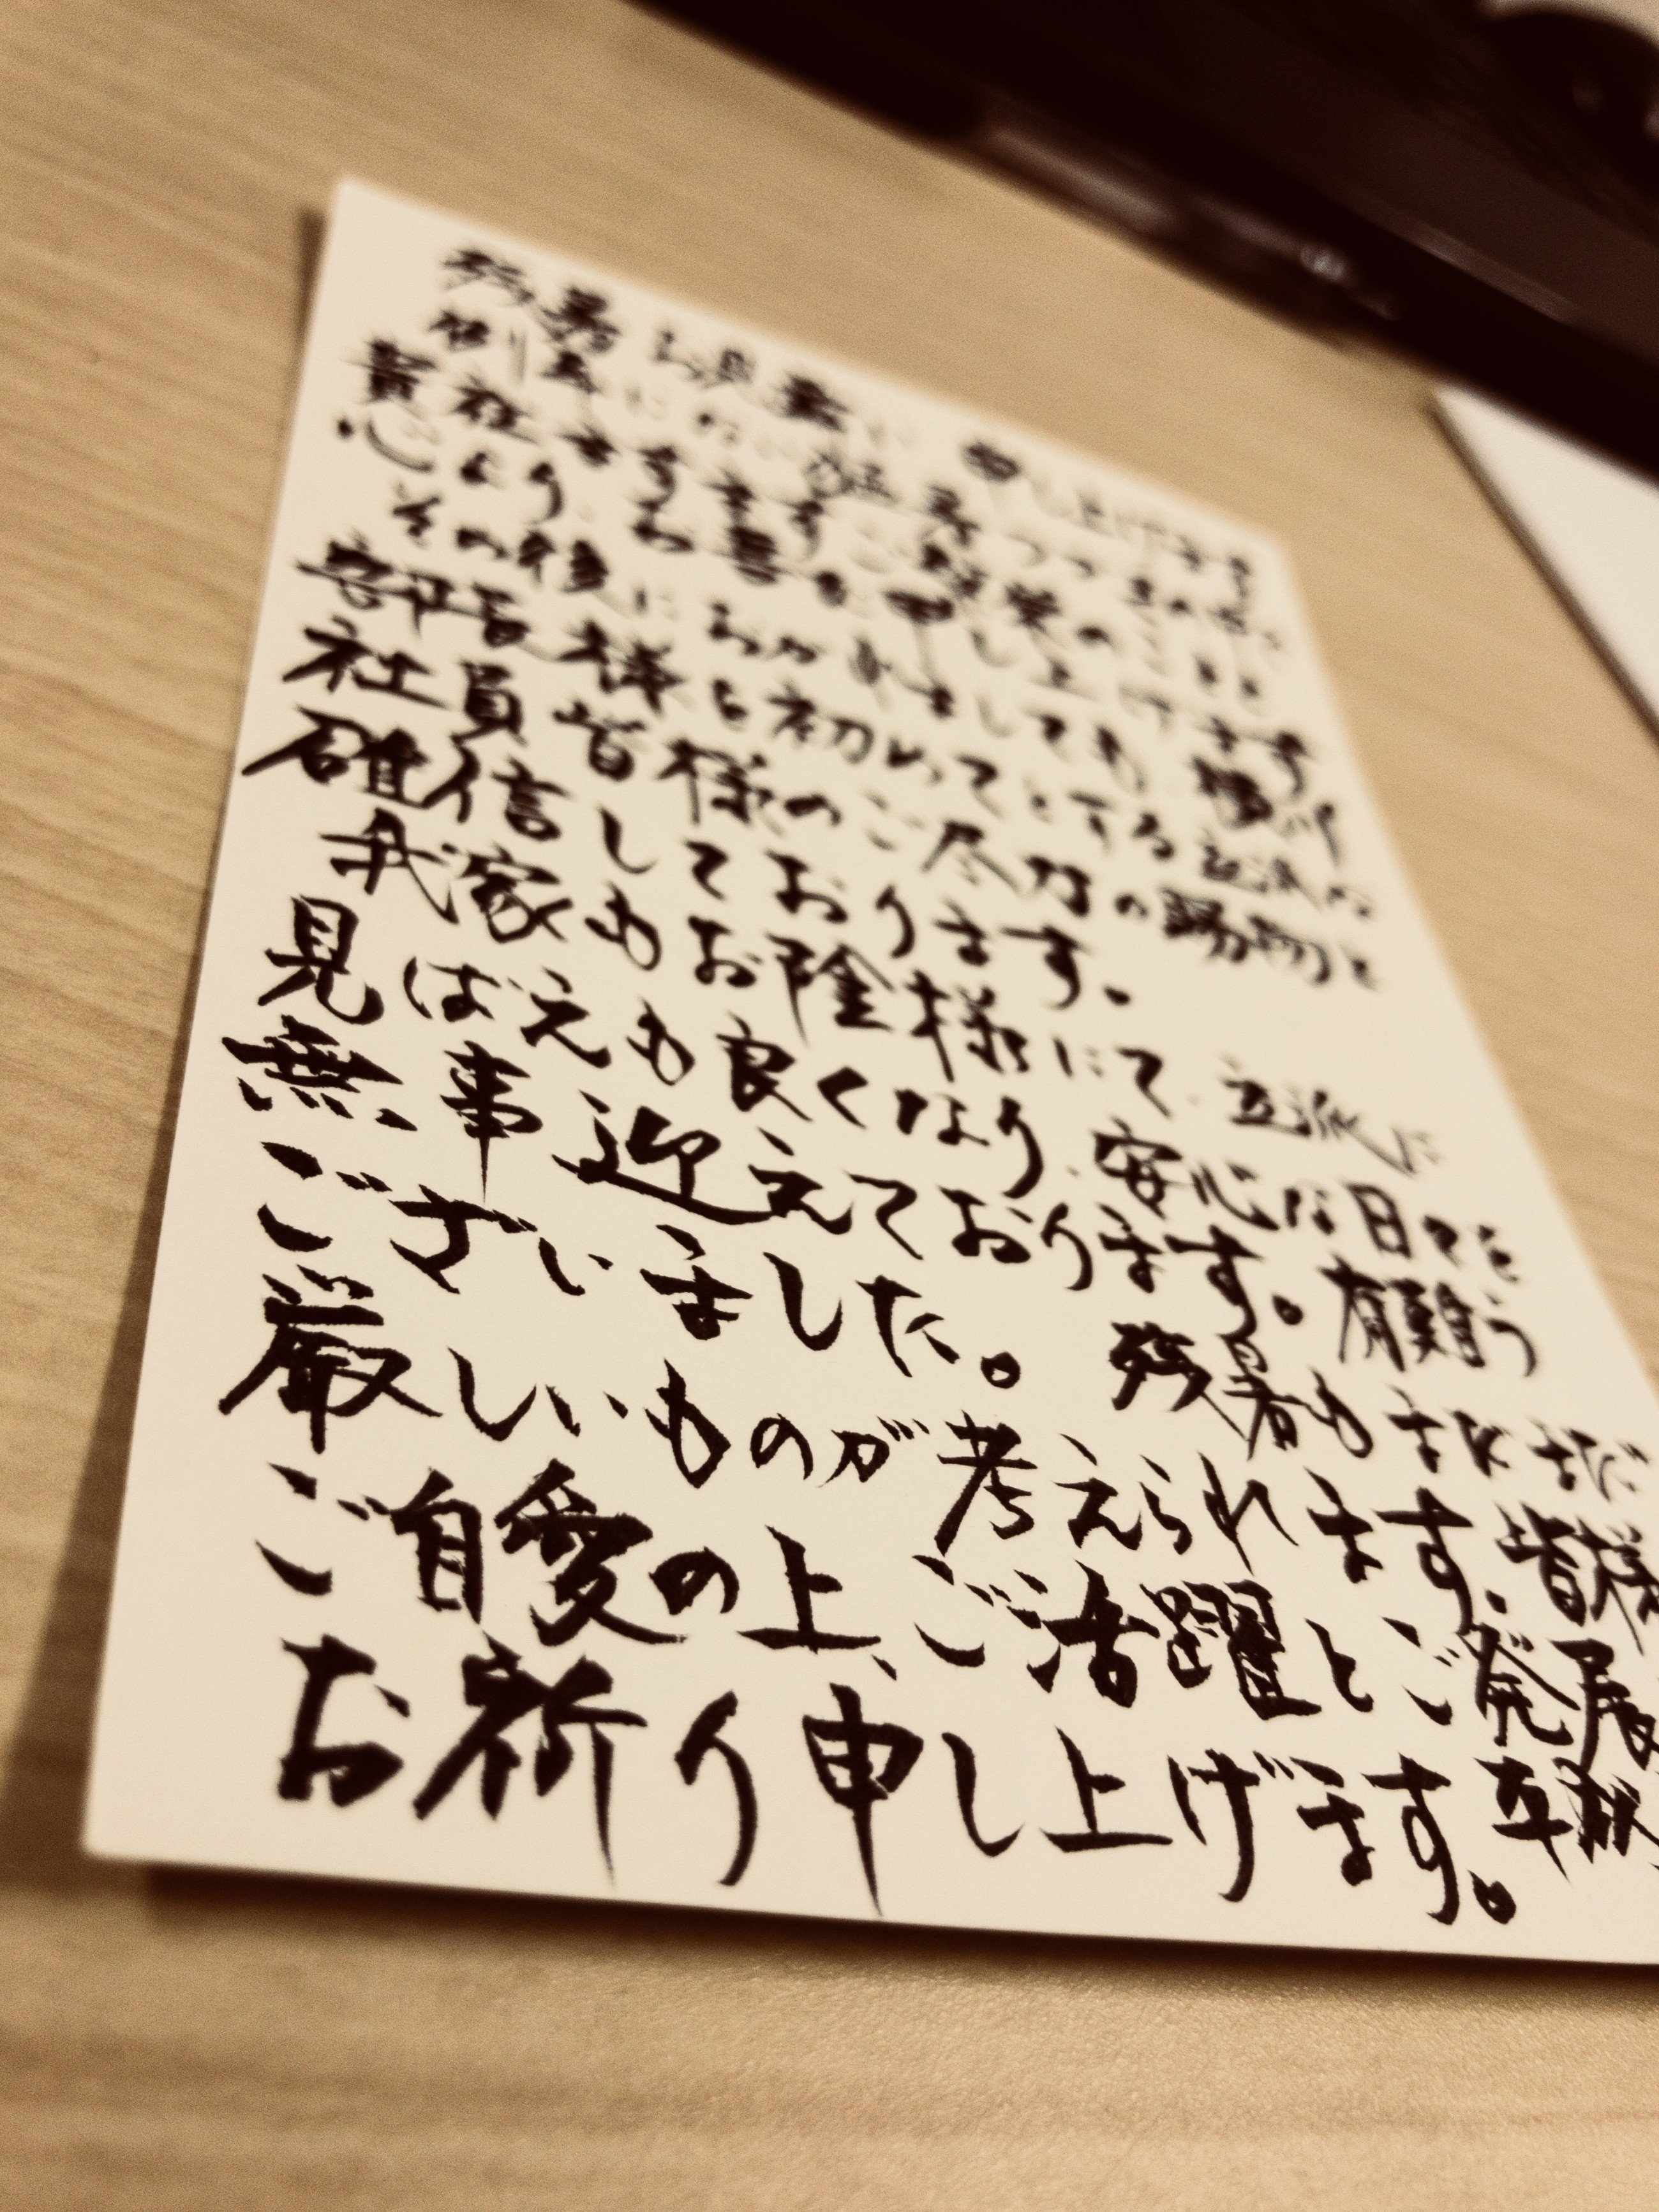 残暑お見舞い申し上げます
貴社ますますご繁栄のことと
心よりお喜び申し上げます
その後におかれましても
部長様を初めとする
社員皆様のご尽力の賜物と
確信しております。
我家もお陰様にて、立派に
見ばえも良くなり、安心な日々を
無事迎えております。有難う
ございました。残暑もまだまだ
厳しいものが考えられます。皆様
ご自愛の上、ご活躍とご発展
お祈り申し上げます。